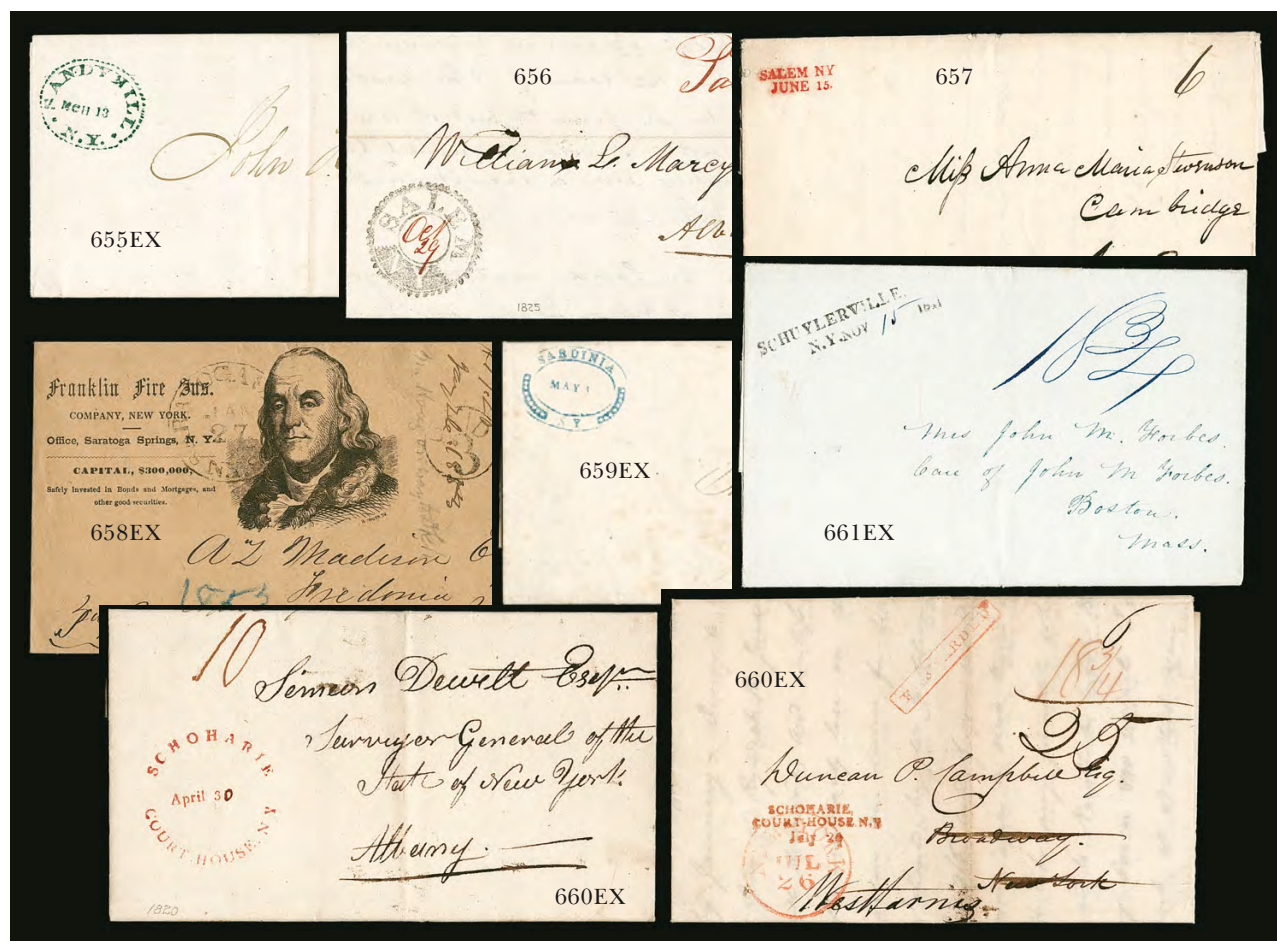 SANDYHILL
MCH 13
N.Y.
John
655EX
656
William L. Marcy
Alb
SALEM
Oct
29
N Y
1825
SALEM NY
JUNE 15.
657
6
Miss Anna Maria Stevenson
Cambridge
Franklin Fire Ins.
COMPANY, NEW YORK.
Office, Saratoga Springs, N. Y.
CAPITAL, $300,000,
Safely invested in Bonds and Mortgages, and
other good securities.
JAN
27
N.Y.
658EX
A L Madison
Fredonia
1883
SARDINIA
MAY 1
N Y
659EX
SCHUYLERVILLE.
N.Y. NOV 15
18 3/4
Mrs John M. Forbes.
Care of John M Forbes.
Boston.
Mass.
661EX
10
Simeon Dewitt Esqr.
Surveyor General of the
State of New York
Albany.
SCHOHARIE
April 30
COURT-HOUSE N.Y
1820
660EX
660EX
FORWARDED
6
18 3/4
25
Duncan P. Campbell Esq.
Broadway.
New York
West Farms
SCHOHARIE,
COURT-HOUSE N.Y
July 24
JUL
26